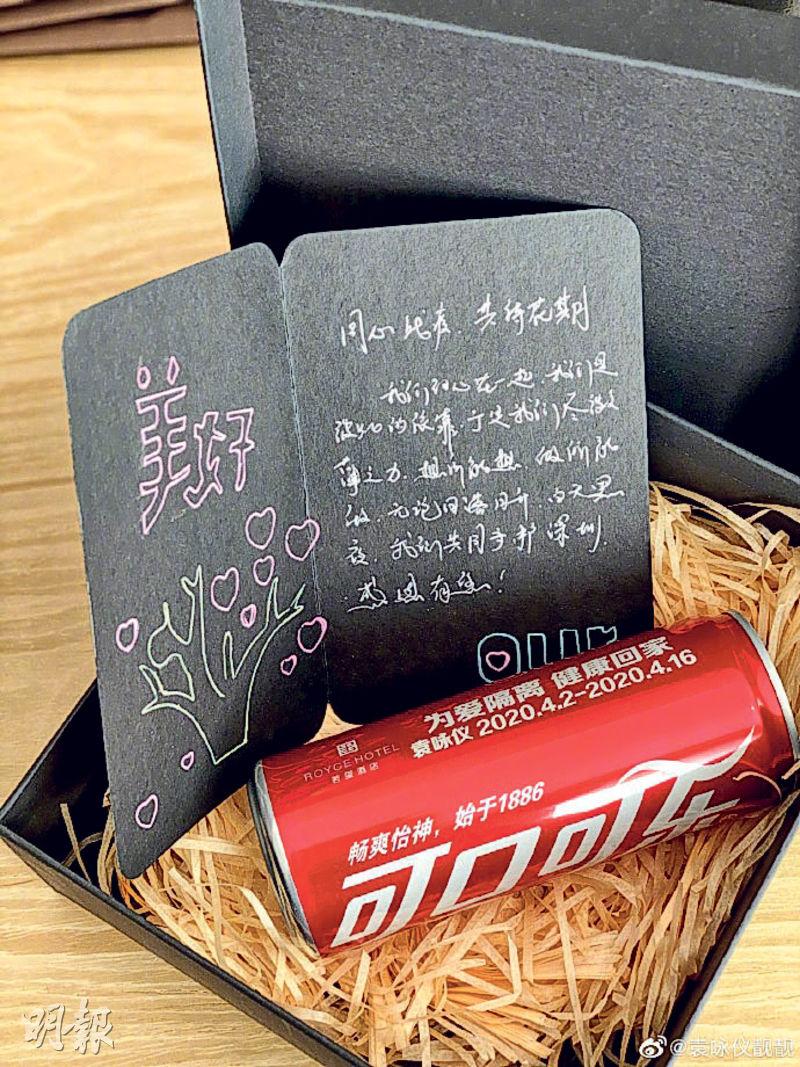 美好
同心战疫.共待花期
我们心在一起.我们是
彼此的依靠.于是我们尽绵
薄之力.想所能想.做所能
做.无论日落日升.白天黑
夜.我们共同守护深圳.
感恩有您!
Our
为爱隔离 健康回家
袁咏仪 2020.4.2-2020.4.16
ROYCE HOTEL
若盛酒店
畅爽怡神，始于1886
可口可乐
明報
@袁咏仪靓靓